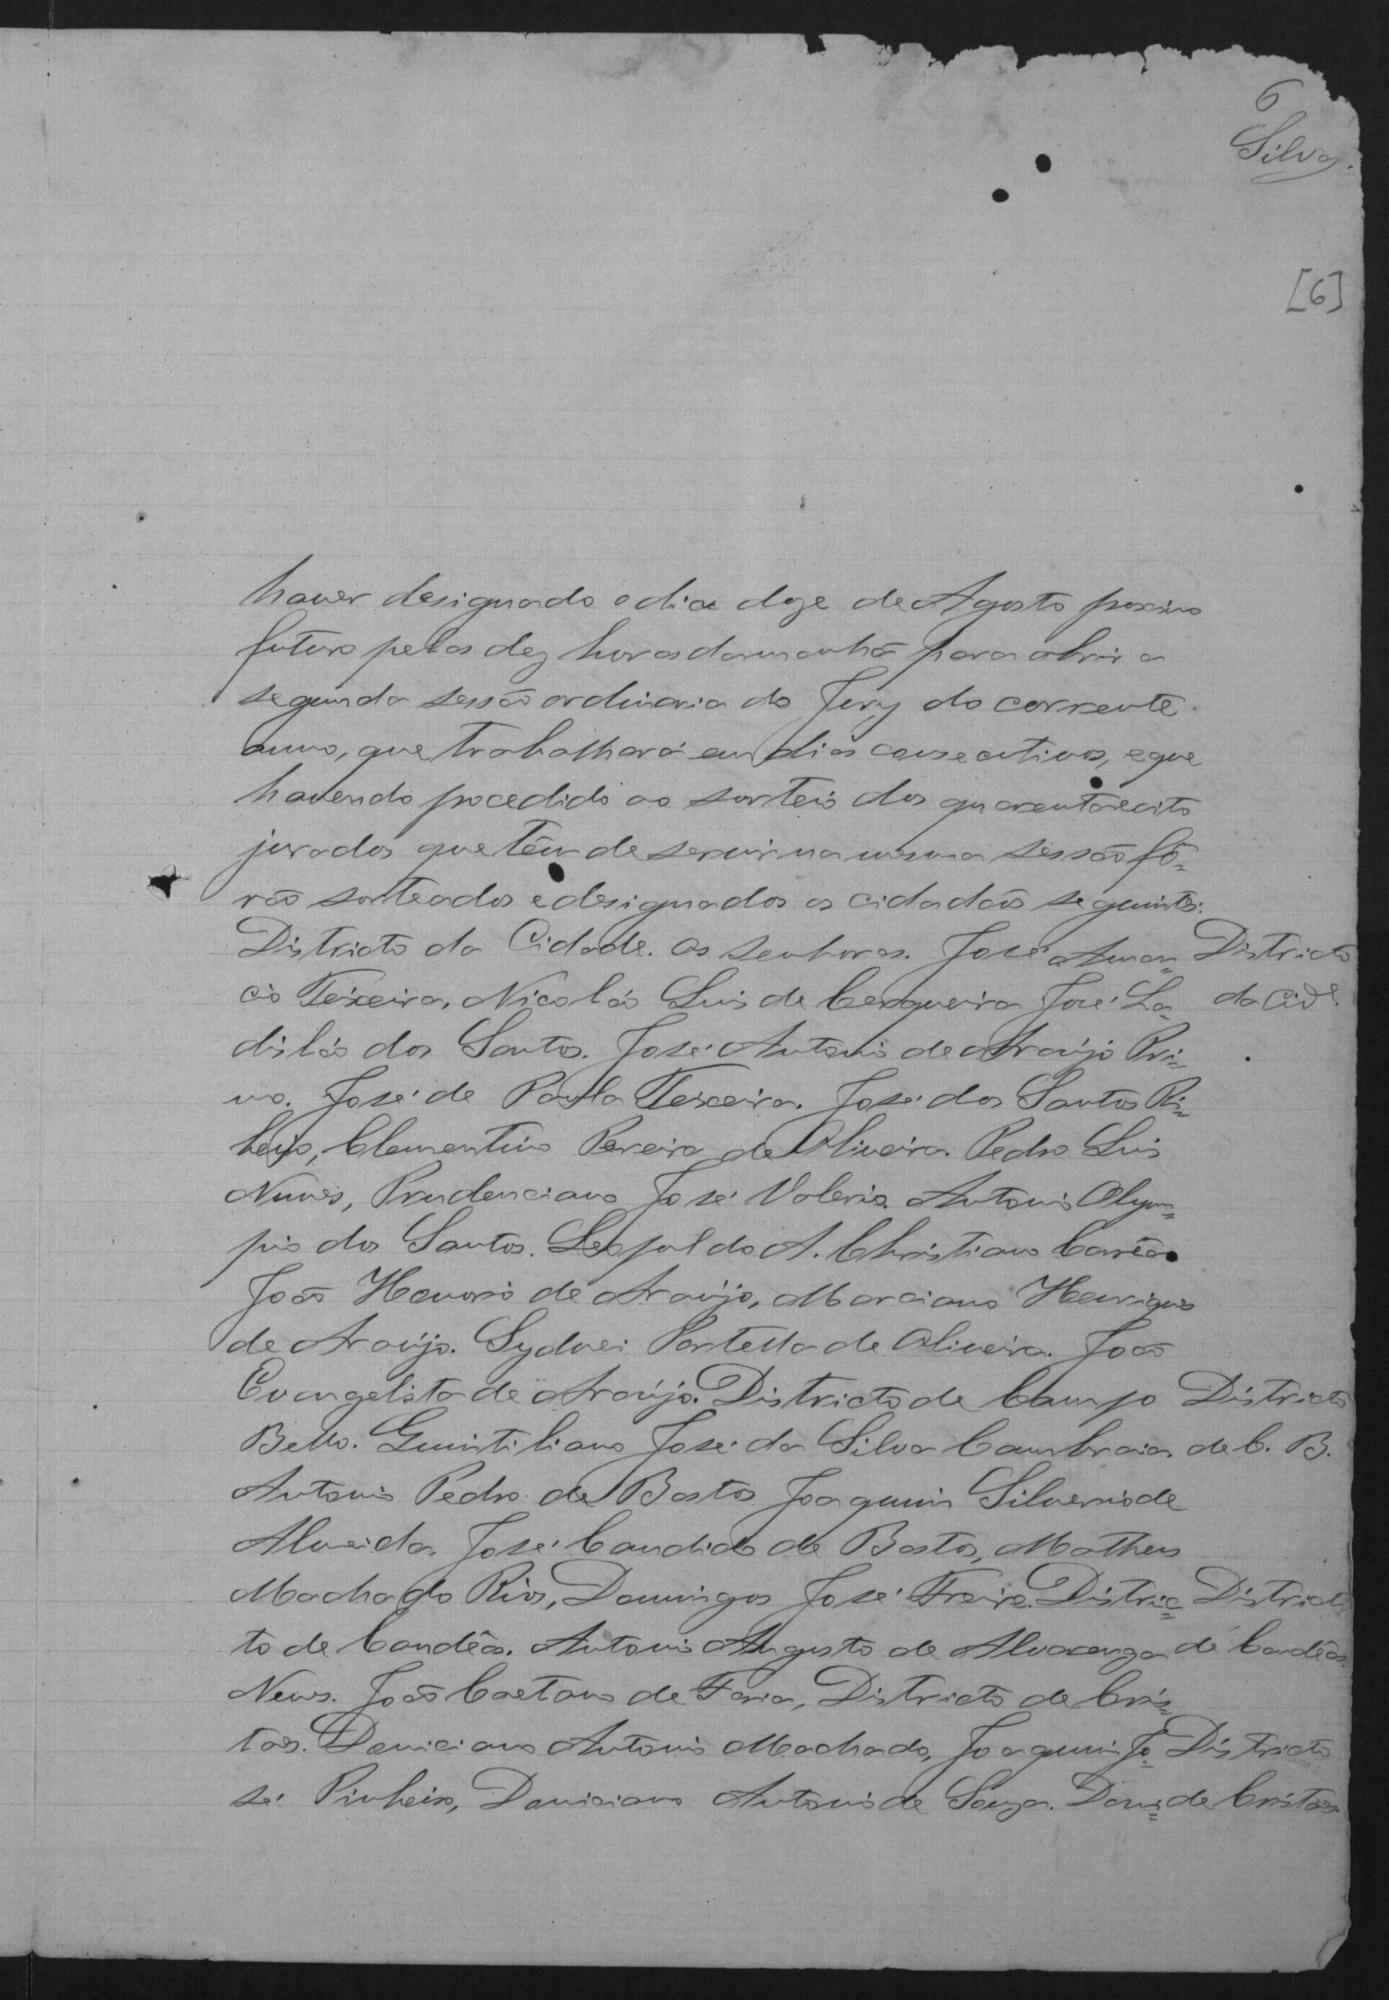 6
Silva.
[6]
haver designado o dia doze de Agosto proximo
futuro pelas dez horas da manhã para abrir a
segunda sessão ordinaria do Jury do corrente
anno, que trabalhará em dias consecutivos, e que
havendo procedido ao sorteio dos quarenta e oito
jurados que têm de servir na mesma sessão fô=
rão sorteados e designados os cidadãos seguintes:
Districto da Cidade. Os senhores. José Aman= Districto
cio Teixeira, Nicoláo Luis de Cerqueira José La= da Cid.e
disláo dos Santos. José Antonio de Araújo Pri=
mo. José de Paula Teixeira. José dos Santos Ri=
beiro, Clementino Pereira de Oliveira. Pedro Luis
Nunes, Prudenciano José Valerio. Antonio Olym=
pio dos Santos. Leopoldo A. Christiano
João Honorio de Araújo, Marciano Henriques
de Araújo. Sydnei Portella de Oliveira. João
Evangelista de Araújo. Districto de Campo Districto
Bello. Quintiliano José da Silva Cambraia. de C. B.
Antonio Pedro de Bastos Joaquim Silverio de
Almeida. José Candido de Bastos, Matheus
Machado Rios, Domingos José Freire. Distric= Districto
to de Candêas. Antonio Augusto de Alvarenga de Candêas.
Neves. João Caetano de Faria, Districto de Cris=
taes. Daniciano Antonio Machado, Joaquim Jo= Districto
sé Pinheiro, Daniciano Antonio de Souza. Domi= de Cristaes